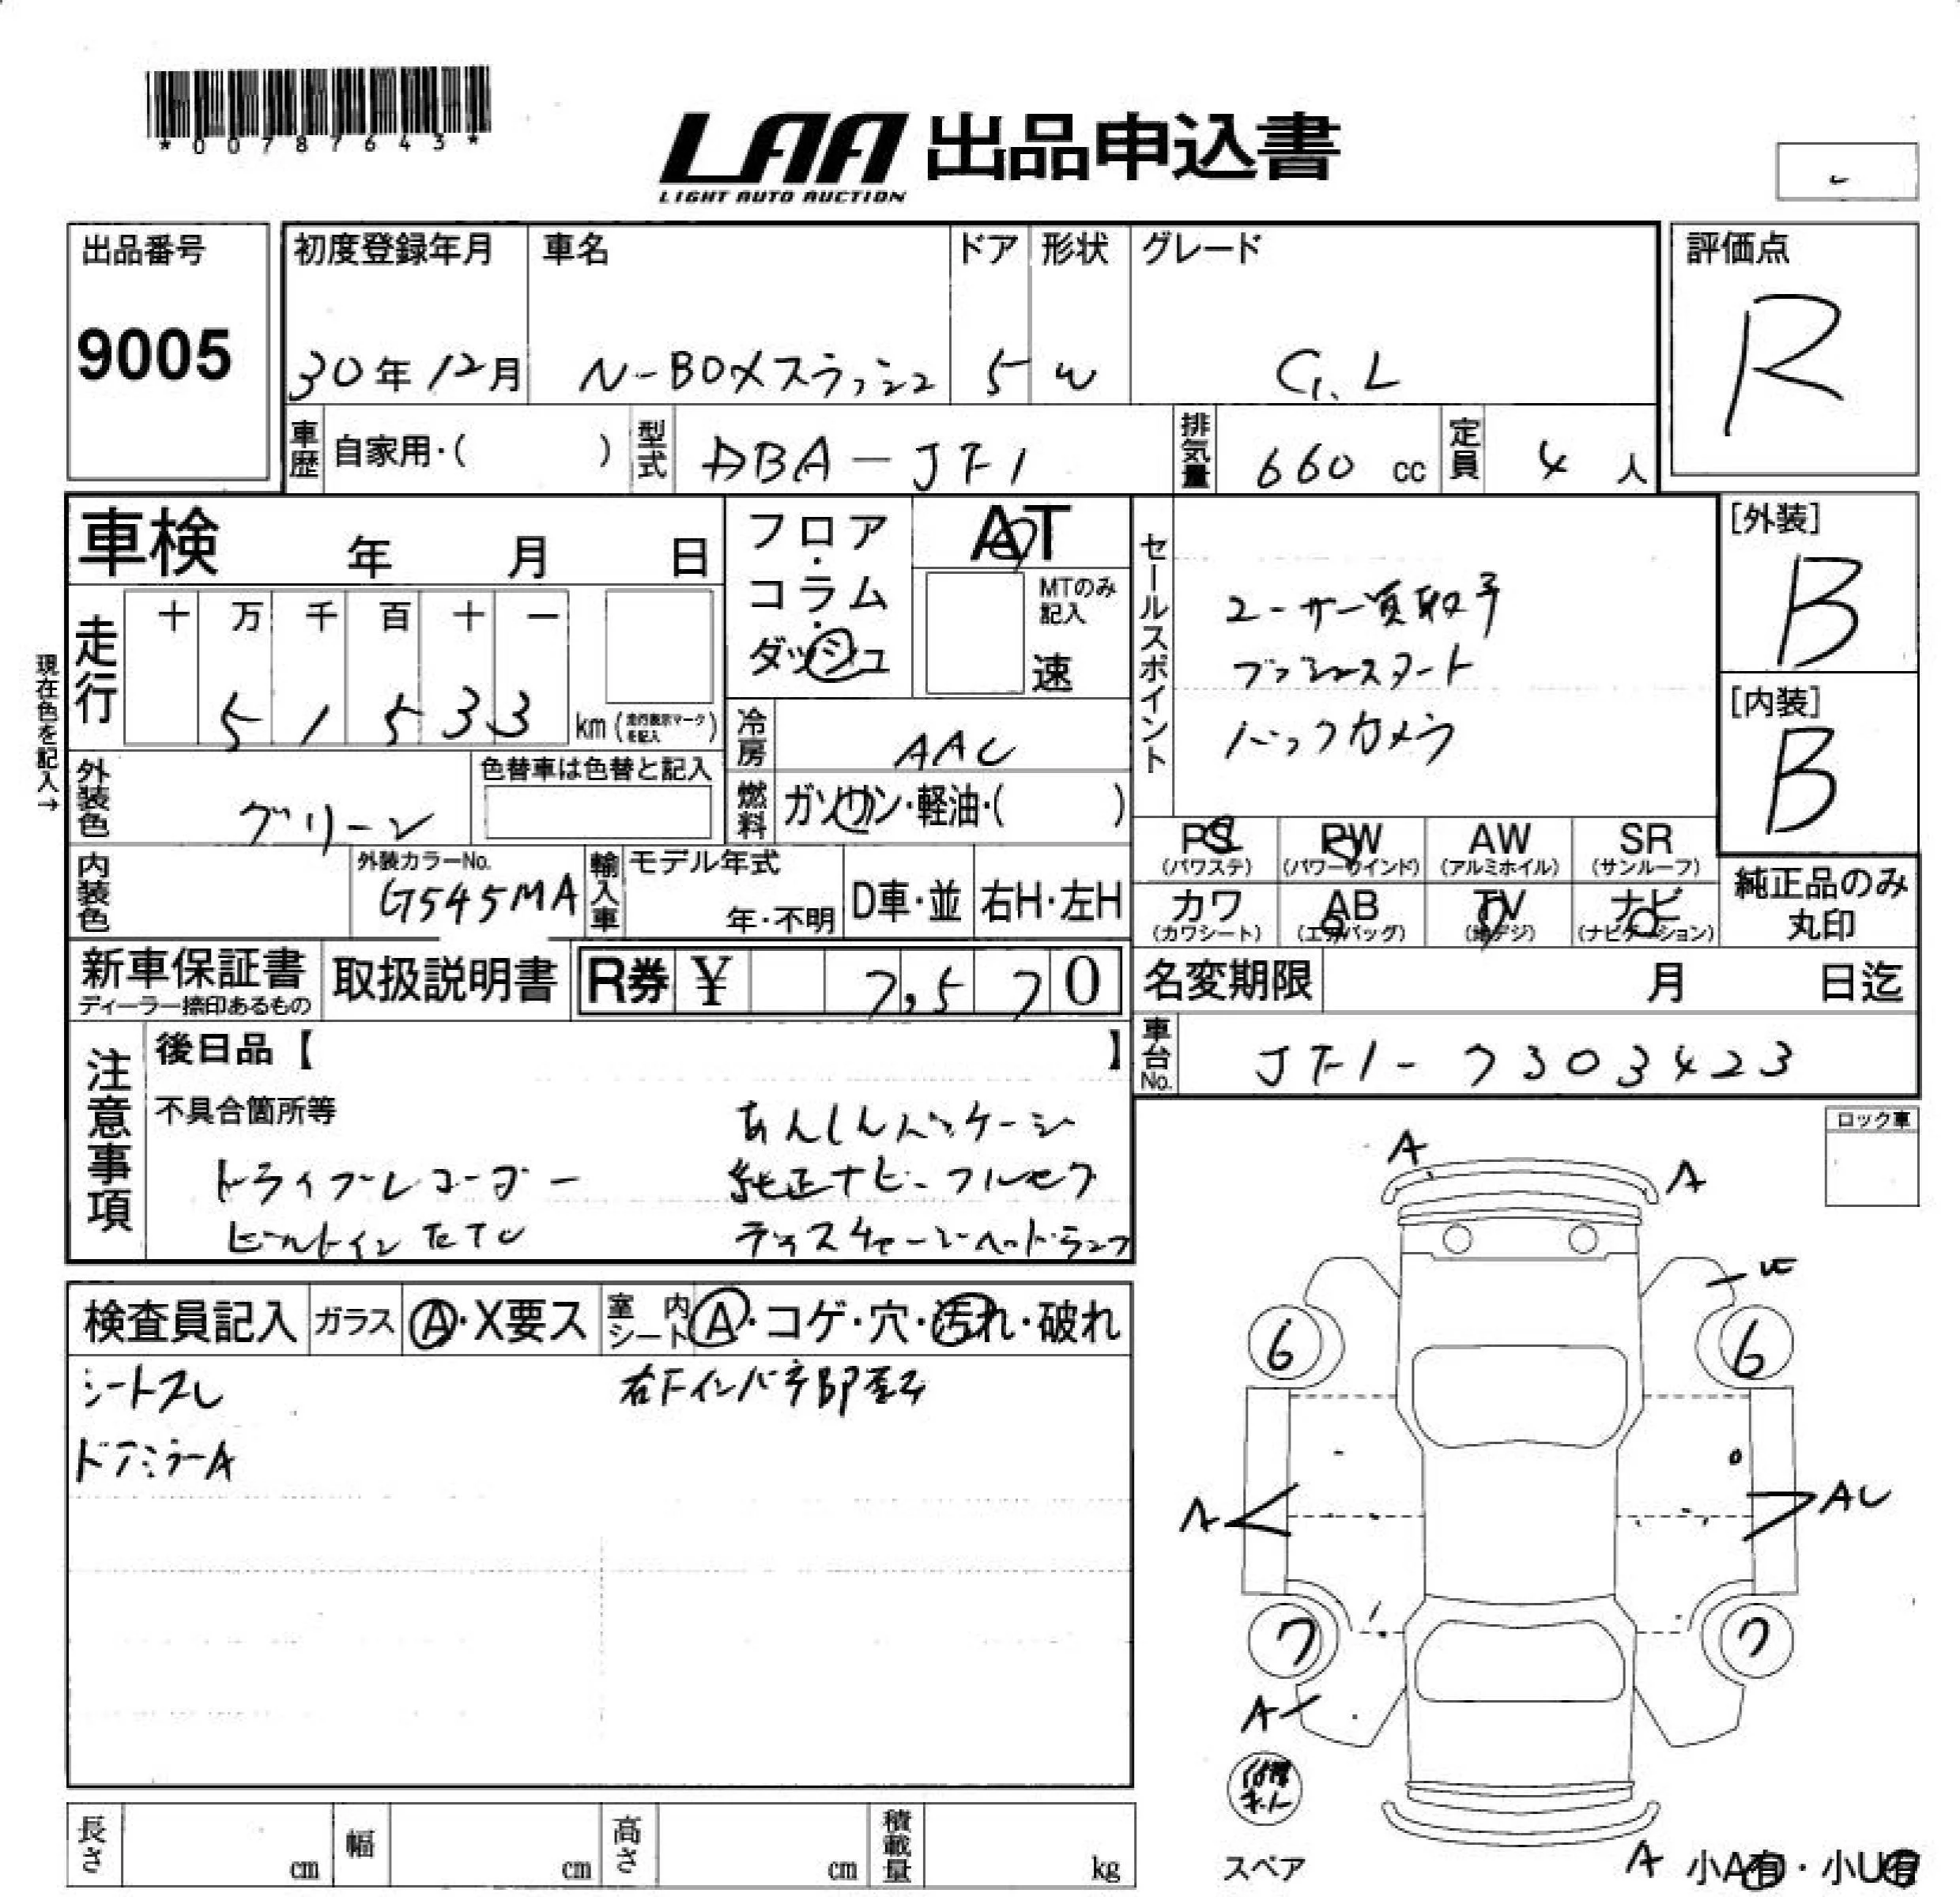 *00787643*
LAA 出品申込書
LIGHT AUTO AUCTION
出品番号
9005
初度登録年月
30年12月
車名
N-BOXスラッシュ
ドア
5
形状
W
グレード
G.L
評価点
R
車歴
自家用・( )
型式
DBA-JF1
排気量
660 cc
定員
4 人
車検 年 月 日
フロア・コラム・ダッシュ
AT
MTのみ記入
速
セールスポイント
ユーザー買取車
プッシュスタート
バックカメラ
[外装]
B
[内装]
B
現在色を記入→
走行
十 万 千 百 十 一
5 1 5 3 3 km (走行表示マークを記入)
冷房
AAC
外装色
グリーン
色替車は色替と記入
燃料
ガソリン・軽油・( )
PS (パワステ)
PW (パワーウインド)
AW (アルミホイル)
SR (サンルーフ)
カワ (カワシート)
AB (エアバッグ)
TV (地デジ)
ナビ (ナビゲーション)
純正品のみ丸印
内装色
外装カラーNo.
G545MA
輸入車
モデル年式
年・不明
D車・並
右H・左H
新車保証書
ディーラー捺印あるもの
取扱説明書
R券 ¥ 7,570
名変期限 月 日迄
車台No.
JF1-7303423
注意事項
後日品【 】
不具合箇所等
あんしんパッケージ
ドライブレコーダー
純正ナビ・フルセグ
ビルトインETC
ディスチャージヘッドランプ
ロック車
検査員記入
ガラス
A・X要ス
室内シート
A・コゲ・穴・汚れ・破れ
シートスレ
右Fインパネ部歪
ドアミラーA
A
A
6
6
A
AU
7
7
A
修理キット
スペア
A
小A有・小U有
長さ cm
幅 cm
高さ cm
積載量 kg